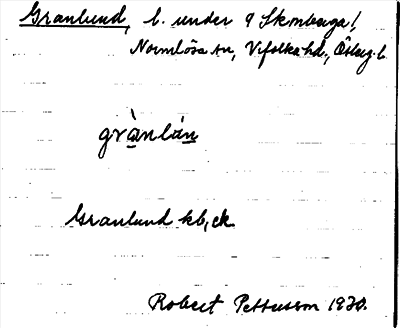 Granlund, l. under 9 Skomberga!,
Normlösa sn, Vifolka hd., Östeg. l.
grànlún
Granlund kb, ek.
Robert Pettersson 1930.